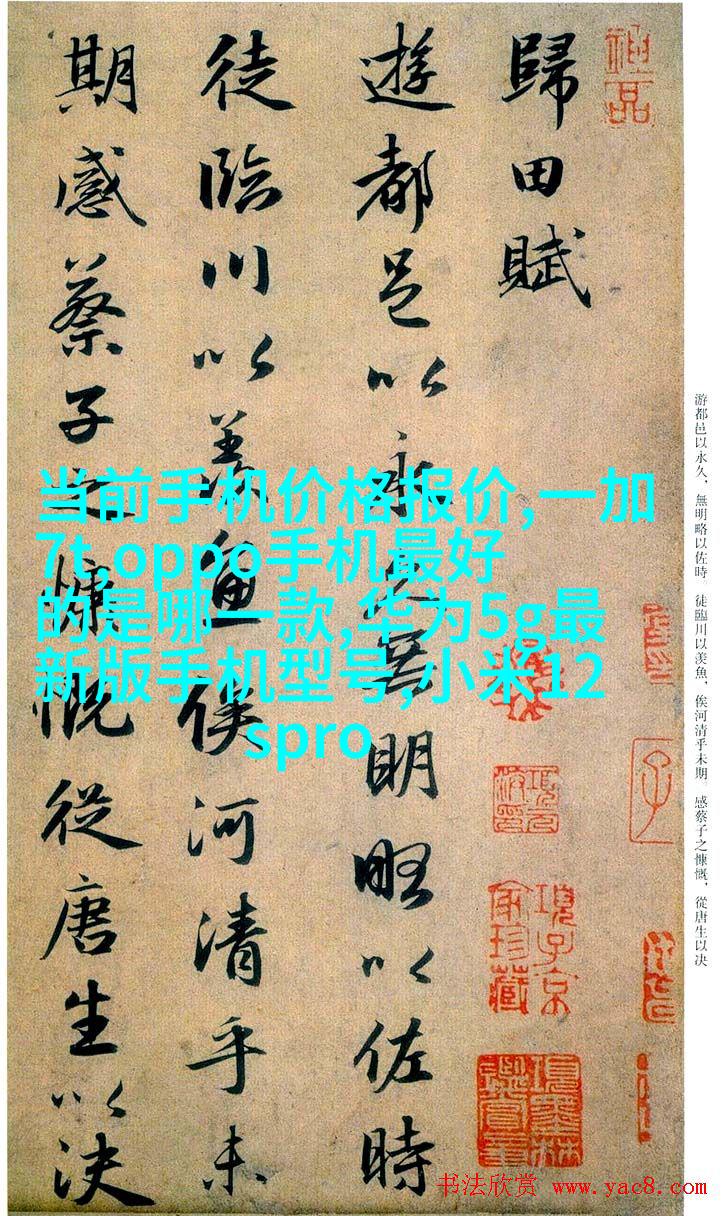 神品
歸田賦
遊都邑以永久無明略以佐時
徒臨川以羨魚俟河清乎未
期感蔡子之慷慨從唐生以決
当前手机价格报价,一加
7t,oppo手机最好
的是哪一款,华为5g最
新版手机型号,小米12
spro
游都邑以永久，無明略以佐時。徒臨川以羨魚，俟河清乎未期。感蔡子之慷慨，從唐生以决
項子京
家珍藏
項墨林
鑒賞章
子
书法欣赏 www.yac8.com